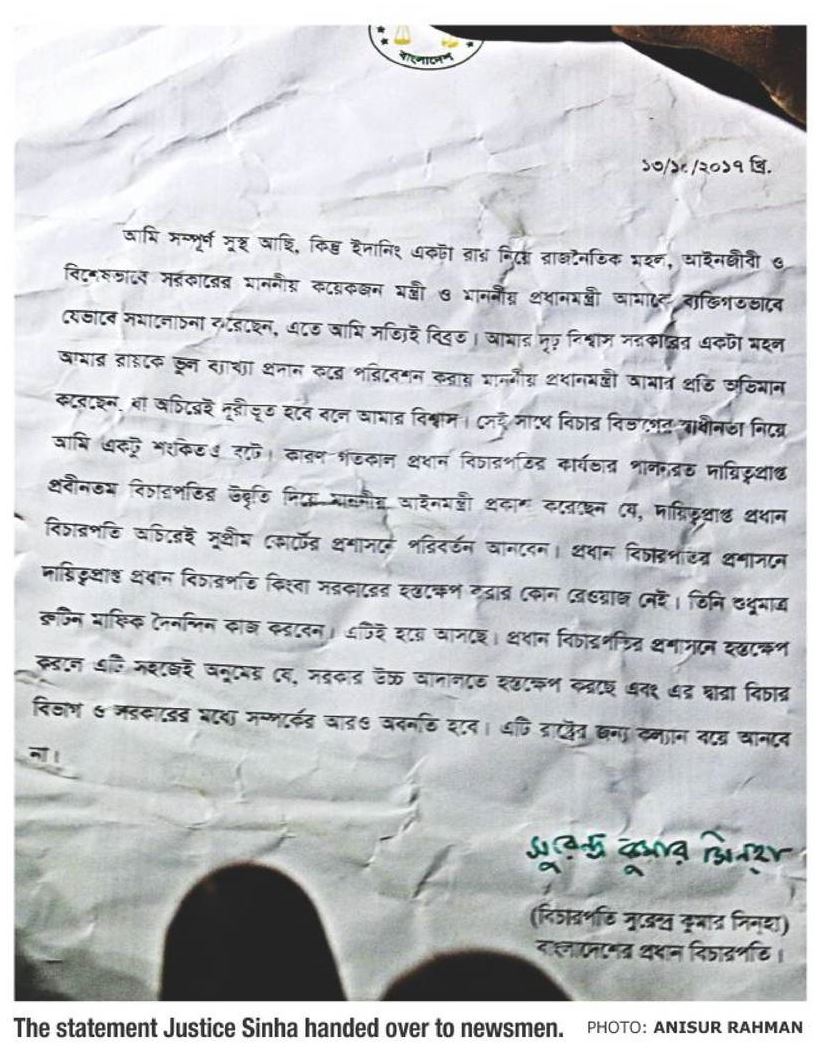 বাংলাদেশ
১৩/১০/২০১৭ খ্রি.
আমি সম্পূর্ণ সুস্থ আছি, কিন্তু ইদানিং একটা রায় নিয়ে রাজনৈতিক মহল, আইনজীবী ও
বিশেষভাবে সরকারের মাননীয় কয়েকজন মন্ত্রী ও মাননীয় প্রধানমন্ত্রী আমাকে ব্যক্তিগতভাবে
যেভাবে সমালোচনা করেছেন, এতে আমি সত্যিই বিব্রত। আমার দৃঢ় বিশ্বাস সরকারের একটা মহল
আমার রায়কে ভুল ব্যাখ্যা প্রদান করে পরিবেশন করায় মাননীয় প্রধানমন্ত্রী আমার প্রতি অভিমান
করেছেন, যা অচিরেই দূরীভূত হবে বলে আমার বিশ্বাস। সেই সাথে বিচার বিভাগের স্বাধীনতা নিয়ে
আমি একটু শংকিতও বটে। কারণ গতকাল প্রধান বিচারপতির কার্যভার পালনরত দায়িত্বপ্রাপ্ত
প্রবীনতম বিচারপতির উদ্বৃতি দিয়ে মাননীয় আইনমন্ত্রী প্রকাশ করেছেন যে, দায়িত্বপ্রাপ্ত প্রধান
বিচারপতি অচিরেই সুপ্রীম কোর্টের প্রশাসনে পরিবর্তন আনবেন। প্রধান বিচারপতির প্রশাসনে
দায়িত্বপ্রাপ্ত প্রধান বিচারপতি কিংবা সরকারের হস্তক্ষেপ করার কোন রেওয়াজ নেই। তিনি শুধুমাত্র
রুটিন মাফিক দৈনন্দিন কাজ করবেন। এটিই হয়ে আসছে। প্রধান বিচারপতির প্রশাসনে হস্তক্ষেপ
করলে এটি সহজেই অনুমেয় যে, সরকার উচ্চ আদালতে হস্তক্ষেপ করছে এবং এর দ্বারা বিচার
বিভাগ ও সরকারের মধ্যে সম্পর্কের আরও অবনতি হবে। এটি রাষ্ট্রের জন্য কল্যান বয়ে আনবে
না।
সুরেন্দ্র কুমার সিনহা
(বিচারপতি সুরেন্দ্র কুমার সিনহা)
বাংলাদেশের প্রধান বিচারপতি।
The statement Justice Sinha handed over to newsmen. PHOTO: ANISUR RAHMAN